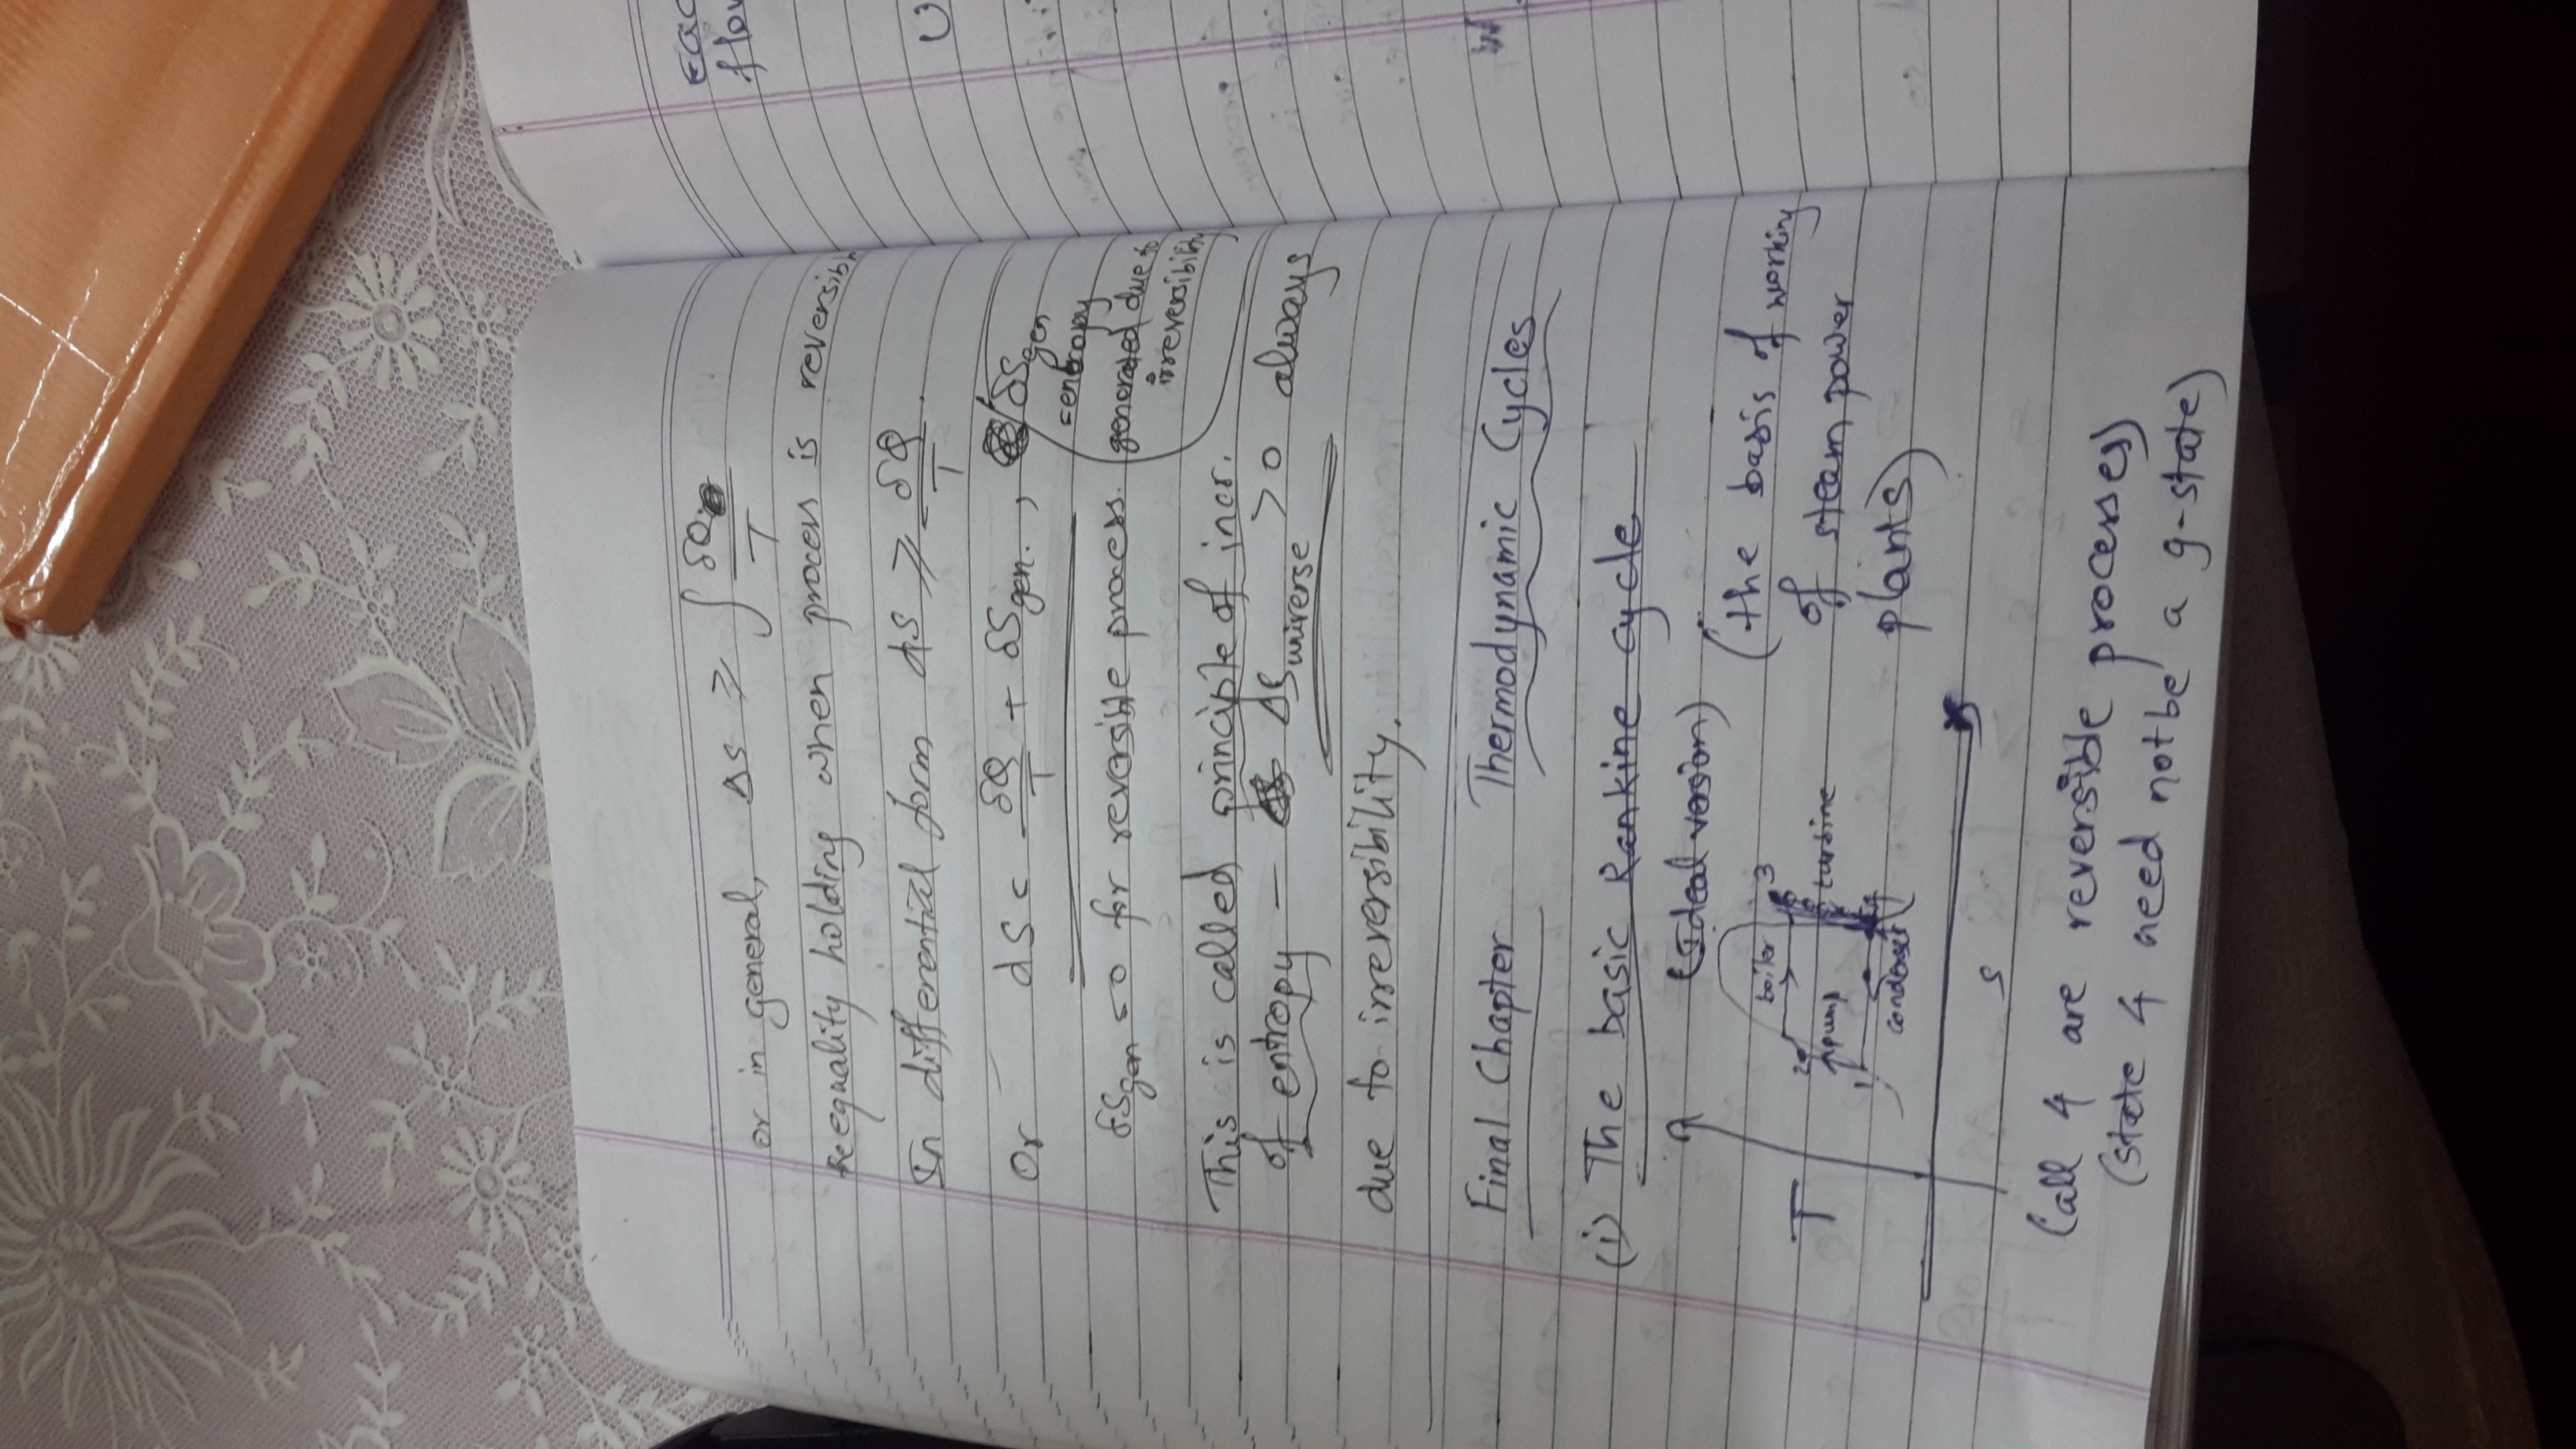 or in general, ΔS ⩾ ∫ δQ / T
the equality holding when process is reversible
In differential form dS ⩾ δQ / T.
Or dS = δQ / T + δSgen. , δSgen
= entropy
generated due to
irreversibility
δSgen = 0 for reversible process.
This is called principle of incr.
of entropy – ΔSuniverse > 0 always
due to irreversibility.
Final Chapter Thermodynamic Cycles
(i) The basic Rankine cycle
(Ideal version)
(the basis of working
of steam power
plants)
T
boiler
3
2
pump
turbine
1
4
condenser
S
(all 4 are reversible processes)
(state 4 need not be a g-state)
flow
U